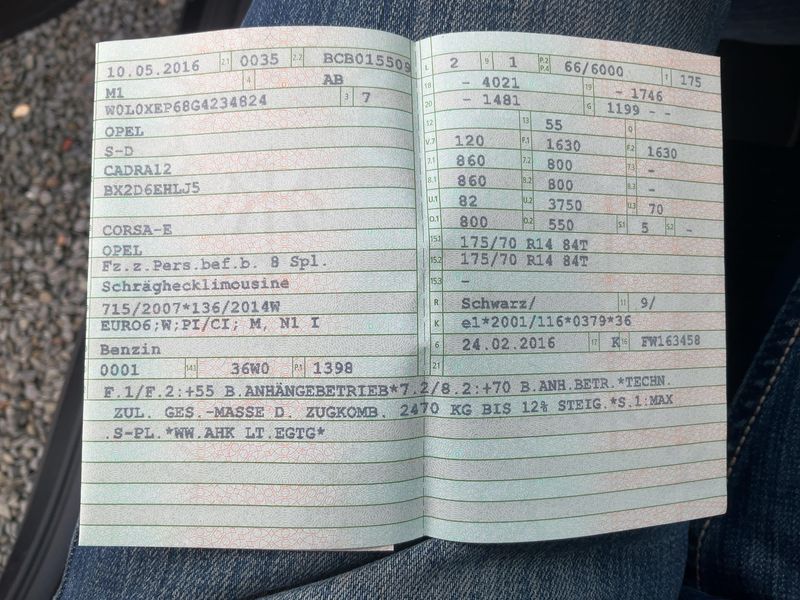 10.05.2016 2.1 0035 2.2 BCB015509
M1 4 AB
W0L0XEP68G4234824 3 7
OPEL
S-D
CADRA12
BX2D6EHLJ5
CORSA-E
OPEL
Fz.z.Pers.bef.b. 8 Spl.
Schräghecklimousine
715/2007*136/2014W
EURO6;W;PI/CI; M, N1 I
Benzin
0001 14.1 36W0 P.1 1398
L 2 9 1 P.2 P.4 66/6000 T 175
18 - 4021 19 - 1746
20 - 1481 G 1199 - -
12 13 55 Q
V.7 120 F.1 1630 F.2 1630
7.1 860 7.2 800 7.3 -
8.1 860 8.2 800 8.3 -
U.1 82 U.2 3750 U.3 70
O.1 800 O.2 550 S.1 5 S.2 -
15.1 175/70 R14 84T
15.2 175/70 R14 84T
15.3 -
R Schwarz/ 11 9/
K e1*2001/116*0379*36
6 24.02.2016 17 K 16 FW163458
21
F.1/F.2:+55 B.ANHÄNGEBETRIEB*7.2/8.2:+70 B.ANH.BETR.*TECHN.
ZUL. GES.-MASSE D. ZUGKOMB. 2470 KG BIS 12% STEIG.*S.1:MAX
.S-PL.*WW.AHK LT.EGTG*